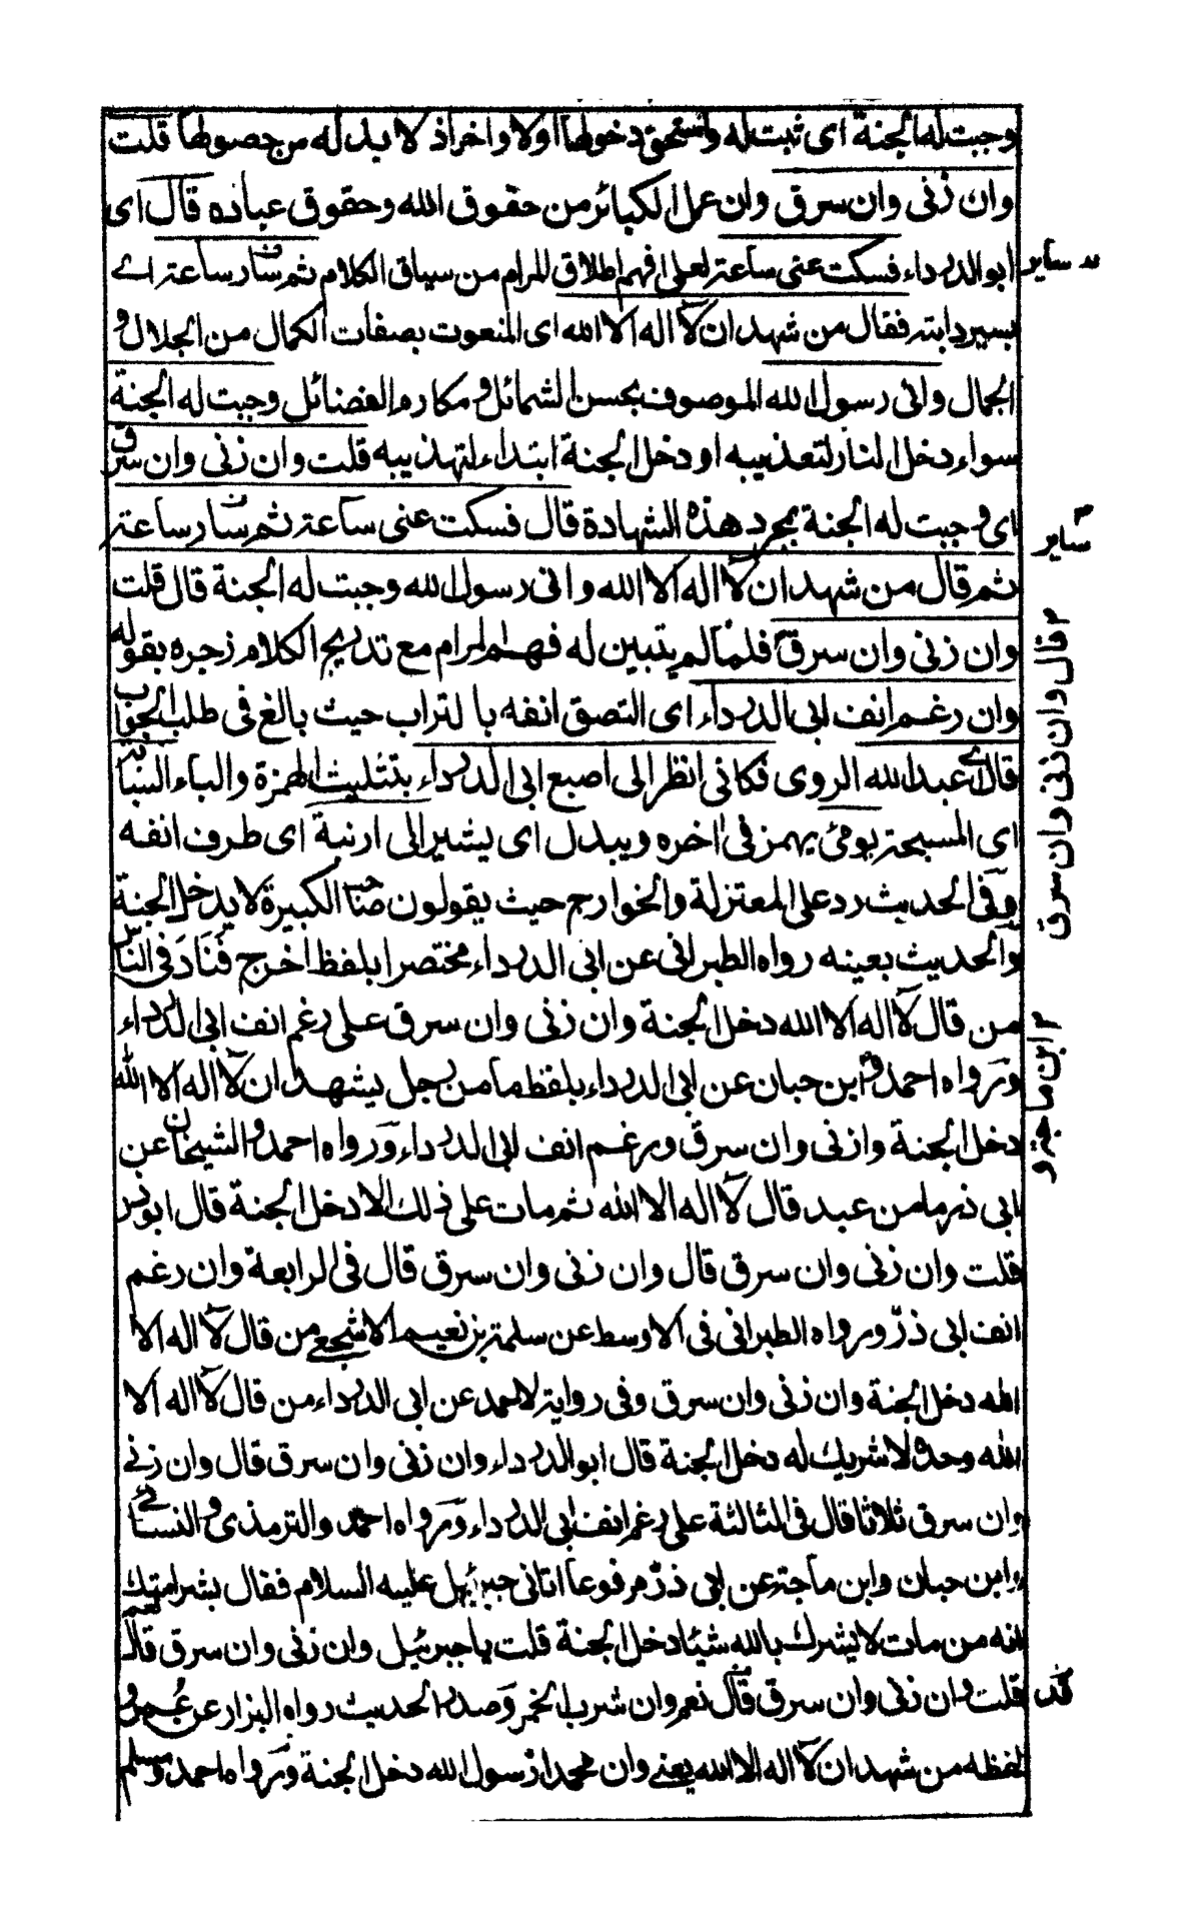 وجبت له الجنة اى ثبت له واستحق دخولها اولا واخرا اذ لا بد له من حصولها قلت
وان زنى وان سرق وان عمل الكبائر من حقوق الله وحقوق عباده قال اى
ابو الدرداء فسكت عنى ساعة لعلى افهم اطلاق المرام من سياق الكلام ثم سار ساعة اے
يسير دابته فقال من شهد ان لا اله الا الله اى المنعوت بصفات الكمال من الجلال و
الجمال وانى رسول الله الموصوف بحسن الشمائل و مكارم الفضائل وجبت له الجنة
سواء دخل النار لتعذيبه او دخل الجنة ابتداء لتهذيبه قلت وان زنى وان سرق
اى وجبت له الجنة بمجرد هذه الشهادة قال فسكت عنى ساعة ثم سار ساعة
ثم قال من شهد ان لا اله الا الله وانى رسول الله وجبت له الجنة قال قلت
وان زنى وان سرق فلما لم يتبين له فهم المرام مع تدريج الكلام زجره بقوله
وان رغم انف ابى الدرداء اى التصق انفه بالتراب حيث بالغ فى طلب الجواب
قال اے عبد الله الروى فكانى انظر الى اصبع ابى الدرداء بتثليث الهمزة والباء السبابة
اى المسبحة يومئ يهمز فى اخره ويبدل اى يشير الى ارنبة اى طرف انفه
وفى الحديث رد على المعتزلة والخوارج حيث يقولون صاحب الكبيرة لا يدخل الجنة
والحديث بعينه رواه الطبرانى عن ابى الدرداء مختصرا بلفظ اخرج فناد فى الناس
من قال لا اله الا الله دخل الجنة وان زنى وان سرق على رغم انف ابى الدرداء
ورواه احمد و ابن حبان عن ابى الدرداء بلفظ ما من رجل يشهد ان لا اله الا الله
دخل الجنة وان زنى وان سرق ورغم انف ابى الدرداء ورواه احمد والشيخان عن
ابى ذر ما من عبد قال لا اله الا الله ثم مات على ذلك الا دخل الجنة قال ابو ذر
قلت وان زنى وان سرق قال وان زنى وان سرق قال فى الرابعة وان رغم
انف ابى ذر ورواه الطبرانى فى الاوسط عن سلمة بن نعيم الاشجعى من قال لا اله الا
الله دخل الجنة وان زنى وان سرق وفى رواية لاحمد عن ابى الدرداء من قال لا اله الا
الله وحده لا شريك له دخل الجنة قال ابو الدرداء وان زنى وان سرق قال وان زنى
وان سرق ثلاثا قال فى الثالثة على رغم انف ابى الدرداء ورواه احمد والترمذى والنسائى
وابن حبان وابن ماجة عن ابى ذر مرفوعا اتانى جبرئيل عليه السلام فقال بشر امتك
انه من مات لا يشرك بالله شيئا دخل الجنة قلت يا جبرئيل وان زنى وان سرق قال نعم
قلت وان زنى وان سرق قال نعم وان شرب الخمر وصدر الحديث رواه البزار عن عمر و
لفظه من شهد ان لا اله الا الله يعنے وان محمدا رسول الله دخل الجنة ورواه احمد ومسلم
ساير
ساير
٢ قال وان زنى وان سرق
٢ ابن ماجة و